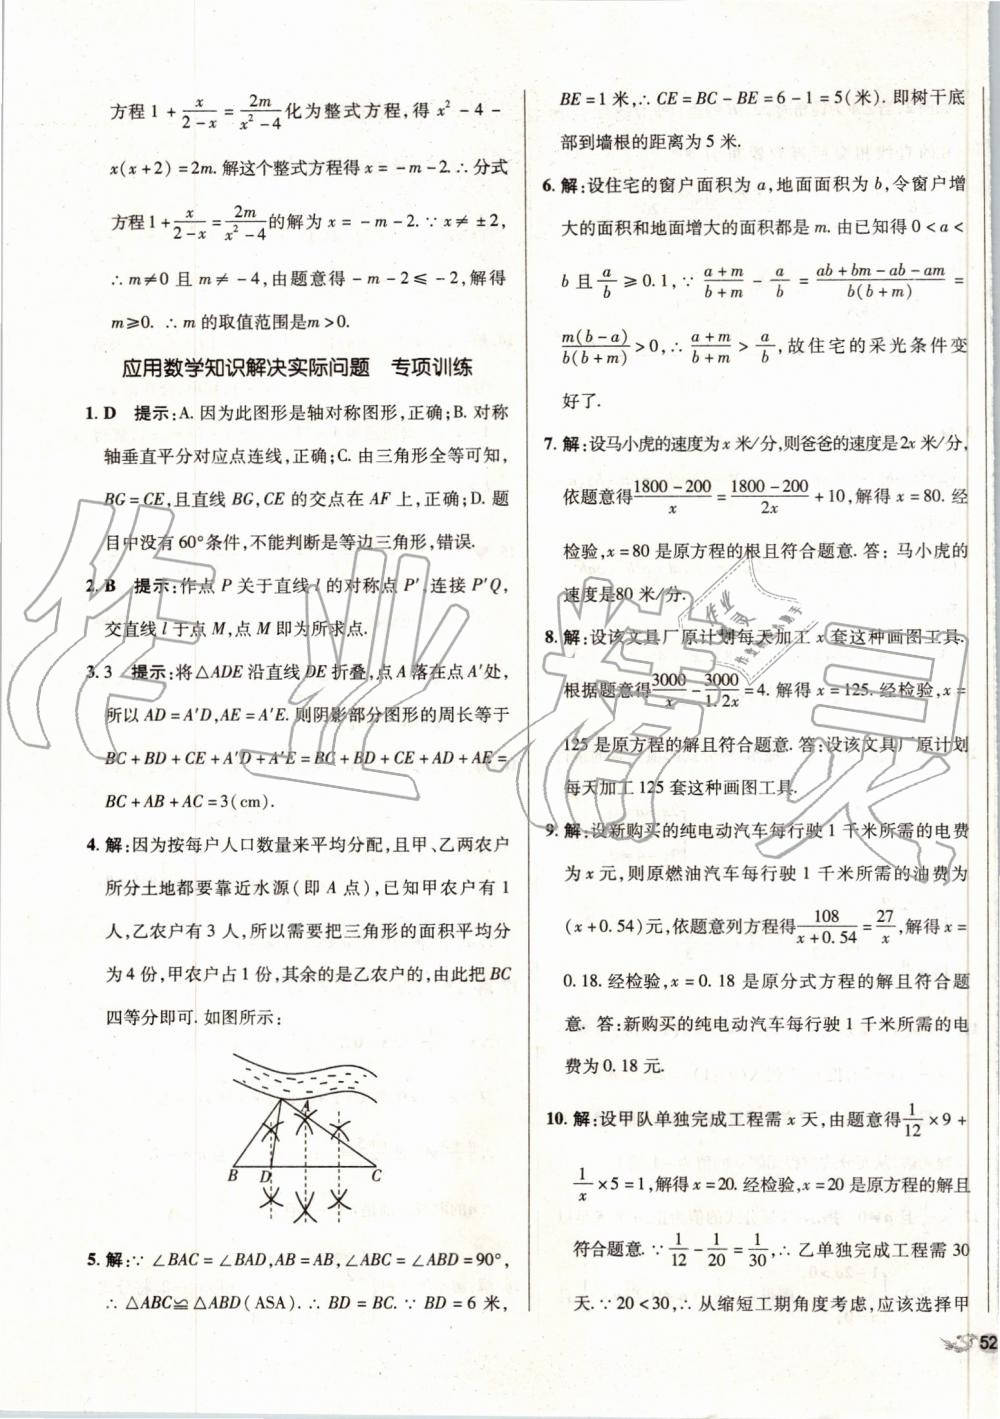 方程1+x/(2-x)=2m/(x²-4)化为整式方程,得 x²-4-
x(x+2)=2m. 解这个整式方程得 x=-m-2. ∴分式
方程1+x/(2-x)=2m/(x²-4)的解为 x=-m-2. ∵x≠±2,
∴m≠0 且 m≠-4,由题意得-m-2≤-2,解得
m≥0. ∴m 的取值范围是m>0.
应用数学知识解决实际问题 专项训练
1. D 提示:A. 因为此图形是轴对称图形,正确;B. 对称
轴垂直平分对应点连线,正确;C. 由三角形全等可知,
BG=CE,且直线 BG,CE 的交点在 AF 上,正确;D. 题
目中没有60°条件,不能判断是等边三角形,错误.
2. B 提示:作点 P 关于直线 l 的对称点 P′,连接 P′Q,
交直线 l 于点 M,点 M 即为所求点.
3. 3 提示:将△ADE 沿直线 DE 折叠,点 A 落在点 A′处,
所以 AD=A′D,AE=A′E. 则阴影部分图形的周长等于
BC+BD+CE+A′D+A′E=BC+BD+CE+AD+AE=
BC+AB+AC=3(cm).
4. 解:因为按每户人口数量来平均分配,且甲、乙两农户
所分土地都要靠近水源(即 A 点),已知甲农户有 1
人,乙农户有 3 人,所以需要把三角形的面积平均分
为 4 份,甲农户占 1 份,其余的是乙农户的,由此把 BC
四等分即可. 如图所示:
A
B D C
5. 解:∵∠BAC=∠BAD,AB=AB,∠ABC=∠ABD=90°,
∴△ABC≌△ABD(ASA). ∴BD=BC. ∵BD=6 米,
BE=1 米,∴CE=BC-BE=6-1=5(米). 即树干底
部到墙根的距离为 5 米.
6. 解:设住宅的窗户面积为 a,地面面积为 b,令窗户增
大的面积和地面增大的面积都是 m. 由已知得 0<a<
b 且 a/b≥0.1,∵(a+m)/(b+m)-a/b=(ab+bm-ab-am)/(b(b+m))=
m(b-a)/(b(b+m))>0,∴(a+m)/(b+m)>a/b,故住宅的采光条件变
好了.
7. 解:设马小虎的速度为 x 米/分,则爸爸的速度是2x 米/分,
依题意得(1800-200)/x=(1800-200)/2x+10,解得 x=80. 经
检验,x=80 是原方程的根且符合题意. 答:马小虎的
速度是80 米/分.
8. 解:设该文具厂原计划每天加工 x 套这种画图工具.
根据题意得3000/x-3000/1.2x=4. 解得 x=125. 经检验,x=
125 是原方程的解且符合题意. 答:设该文具厂原计划
每天加工 125 套这种画图工具.
9. 解:设新购买的纯电动汽车每行驶 1 千米所需的电费
为 x 元,则原燃油汽车每行驶 1 千米所需的油费为
(x+0.54)元,依题意列方程得108/(x+0.54)=27/x,解得 x=
0.18. 经检验,x=0.18 是原分式方程的解且符合题
意. 答:新购买的纯电动汽车每行驶 1 千米所需的电
费为 0.18 元.
10. 解:设甲队单独完成工程需 x 天,由题意得1/12×9+
1/x×5=1,解得 x=20. 经检验,x=20 是原方程的解且
符合题意. ∵1/12-1/20=1/30,∴乙单独完成工程需 30
天. ∵20<30,∴从缩短工期角度考虑,应该选择甲
52
作业精灵